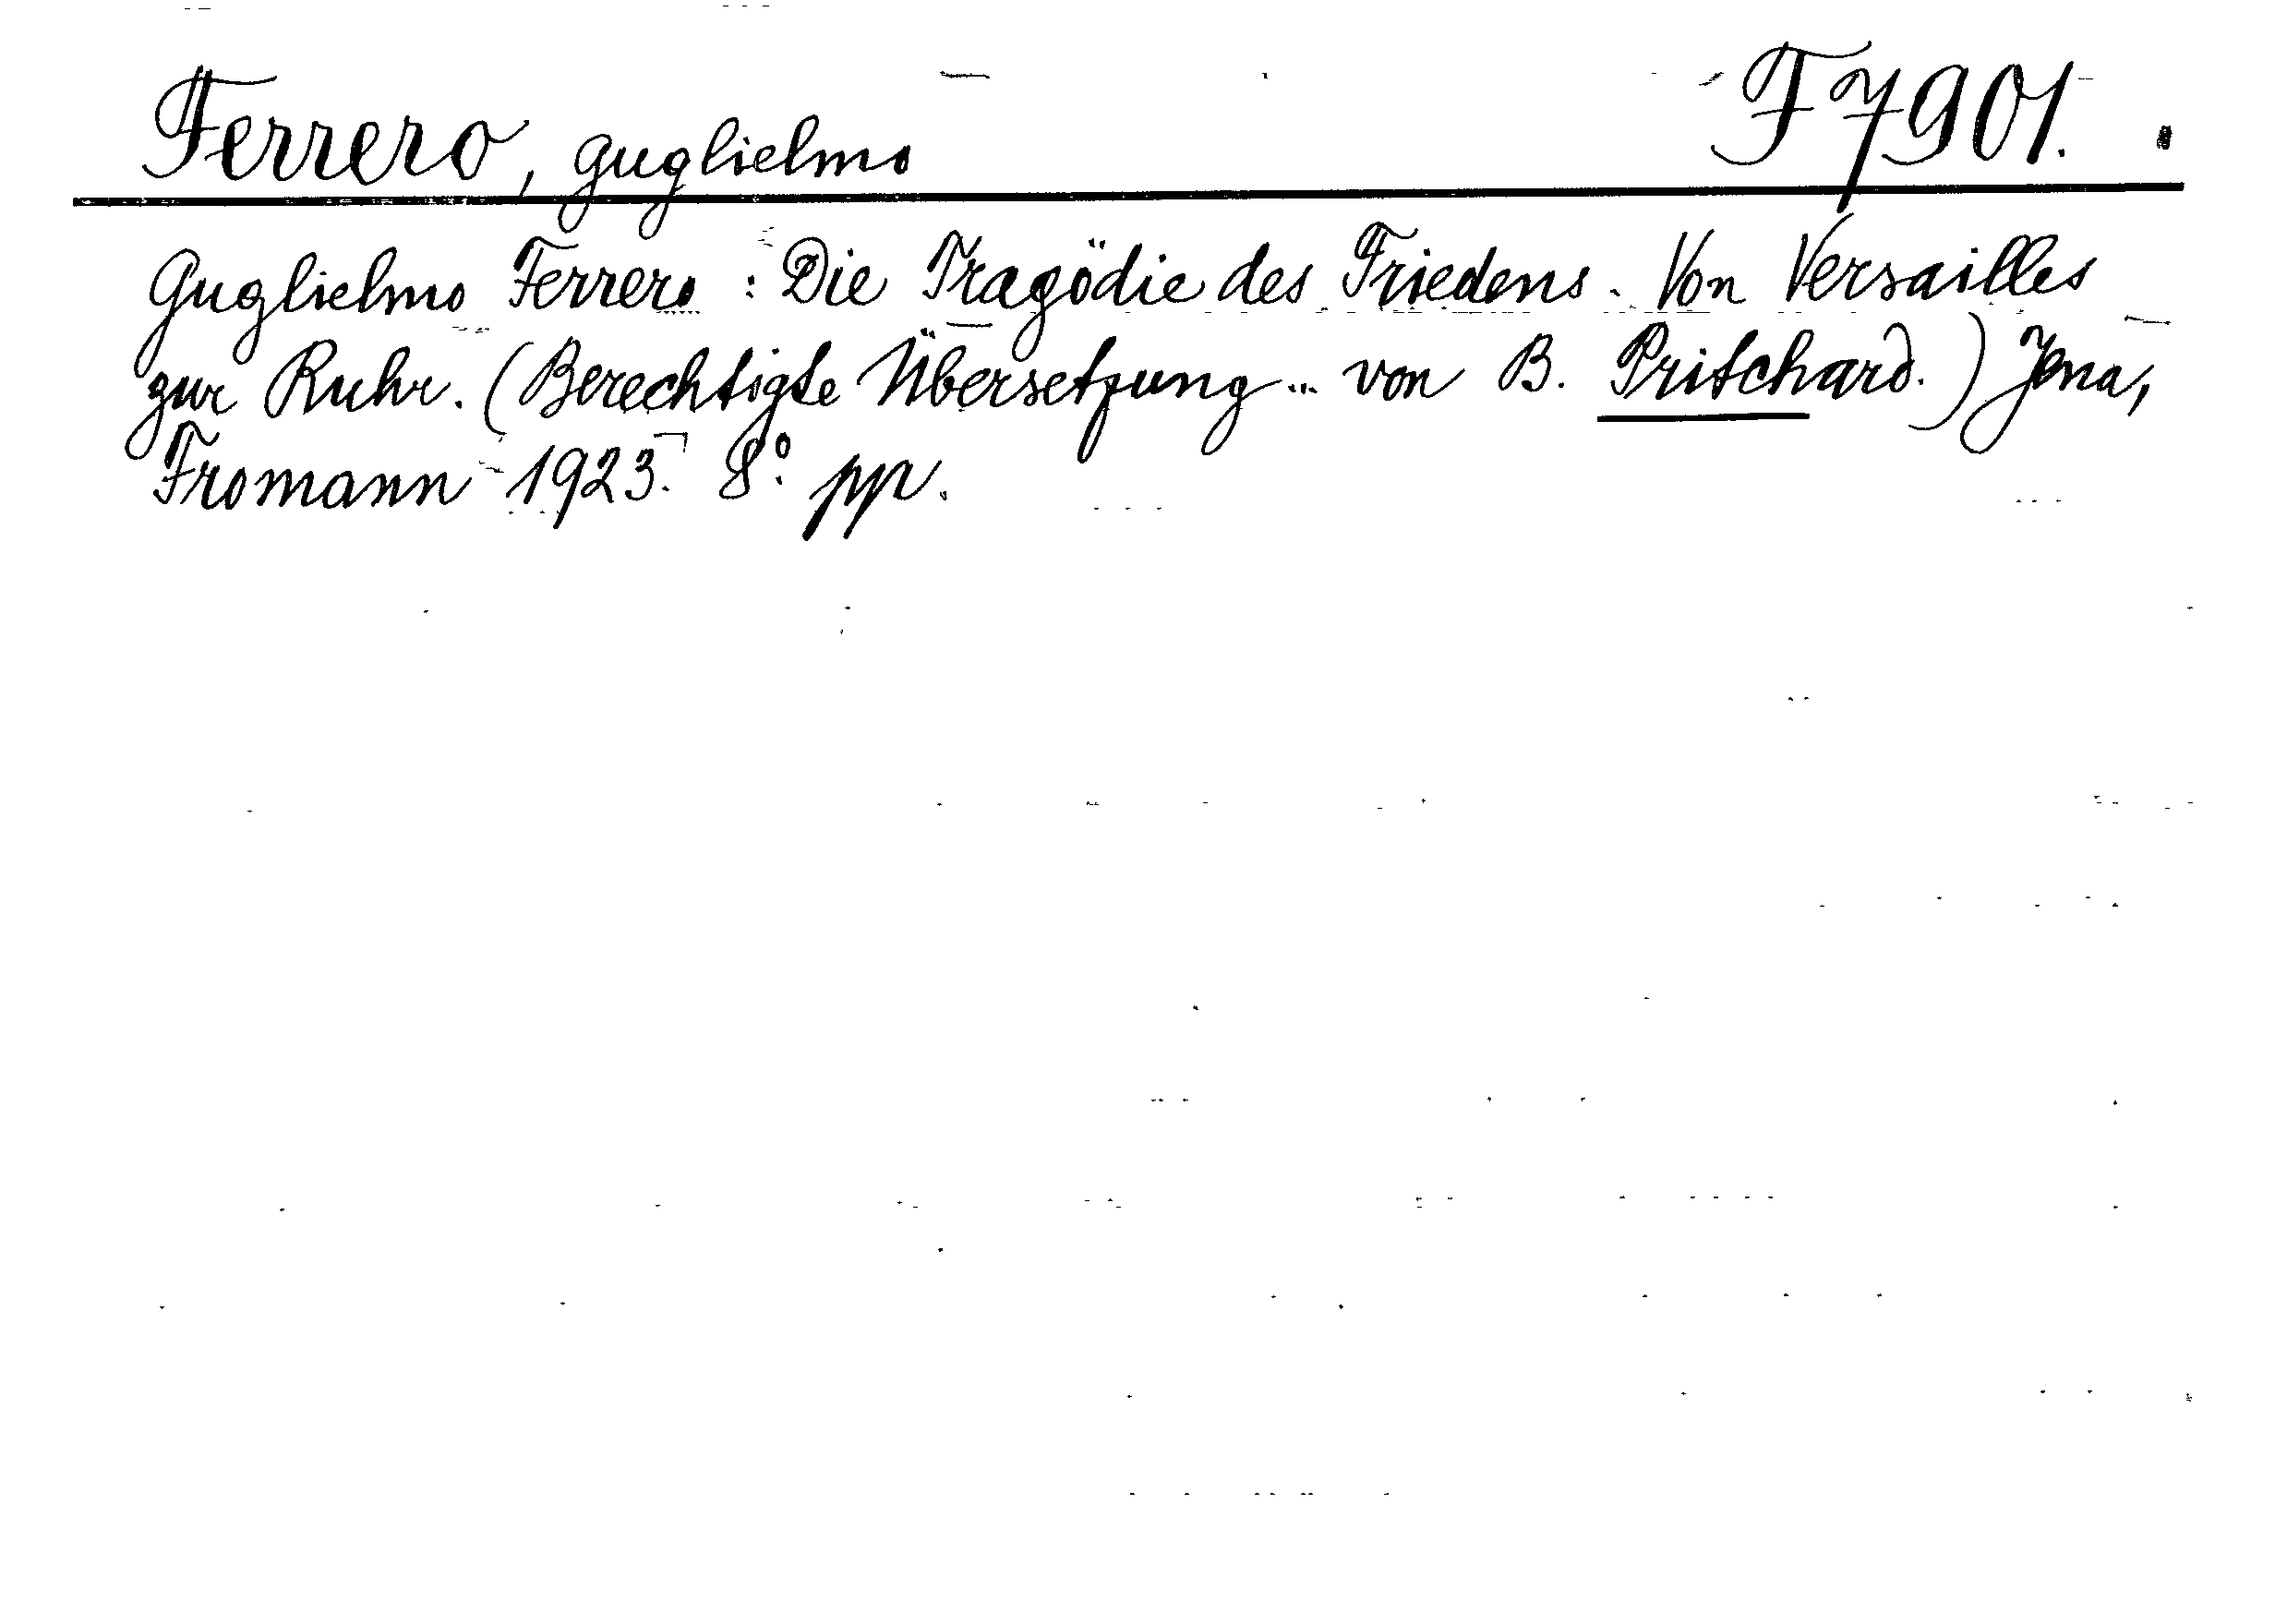 Ferrero, Guglielmo F 7901.
Guglielmo Ferrero : Die Tragödie des Friedens. Von Versailles
zur Ruhr. (Berechtigte Übersetzung... von B. Pritchard.) Jena,
Fromann 1923. 8°. pp.